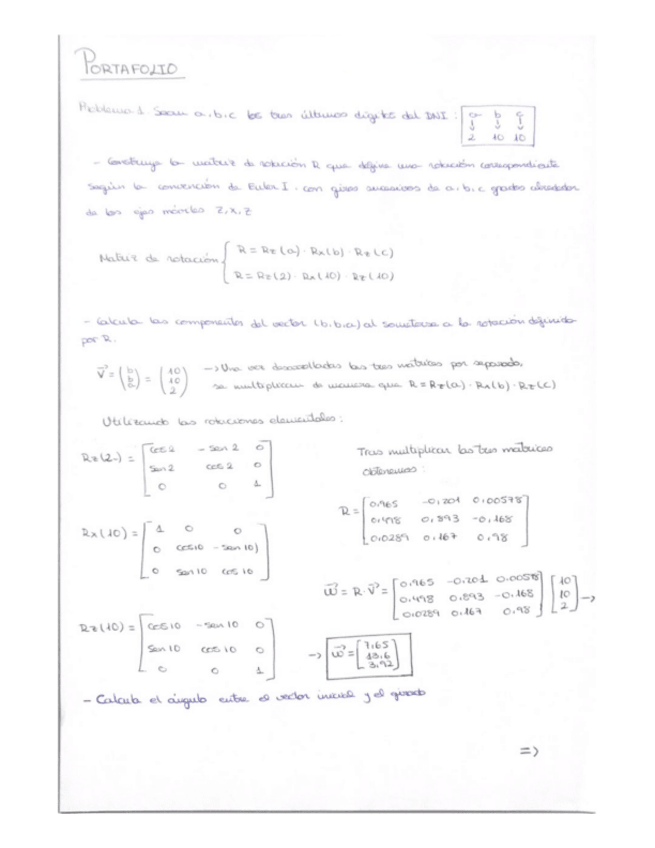 PORTAFOLIO
Problema 1. Sean a, b, c los tres últimos dígitos del DNI:
a b c
↓ ↓ ↓
2 10 10
- Construye la matriz de rotación R que define una rotación correspondiente
según la convención de Euler I, con giros sucesivos de a, b, c grados alrededor
de los ejes móviles z, x, z
Matriz de rotación { R = Rz(a) · Rx(b) · Rz(c)
R = Rz(2) · Rx(10) · Rz(10)
- Calcula las componentes del vector (b, b, a) al someterse a la rotación definida
por R.
V = (b b a) = (10 10 2) → Una vez desarrolladas las tres matrices por separado,
se multiplican de manera que R = Rz(a) · Rx(b) · Rz(c)
Utilizando las rotaciones elementales:
Rz(2) = [cos 2 - sen 2 0
sen 2 cos 2 0
0 0 1]
Tras multiplicar las tres matrices
obtenemos:
R = [0.965 -0.201 0.00578
0.198 0.893 -0.168
0.0289 0.167 0.98]
Rx(10) = [1 0 0
0 cos10 - sen10)
0 sen 10 cos 10]
W = R · V = [0.965 -0.201 0.00578
0.198 0.893 -0.168
0.0289 0.167 0.98] [10 10 2] →
Rz(10) = [cos 10 - sen 10 0
sen 10 cos 10 0
0 0 1]
→ W = [7.65
13.6
3.92]
- Calcula el ángulo entre el vector inicial y el girado
=>